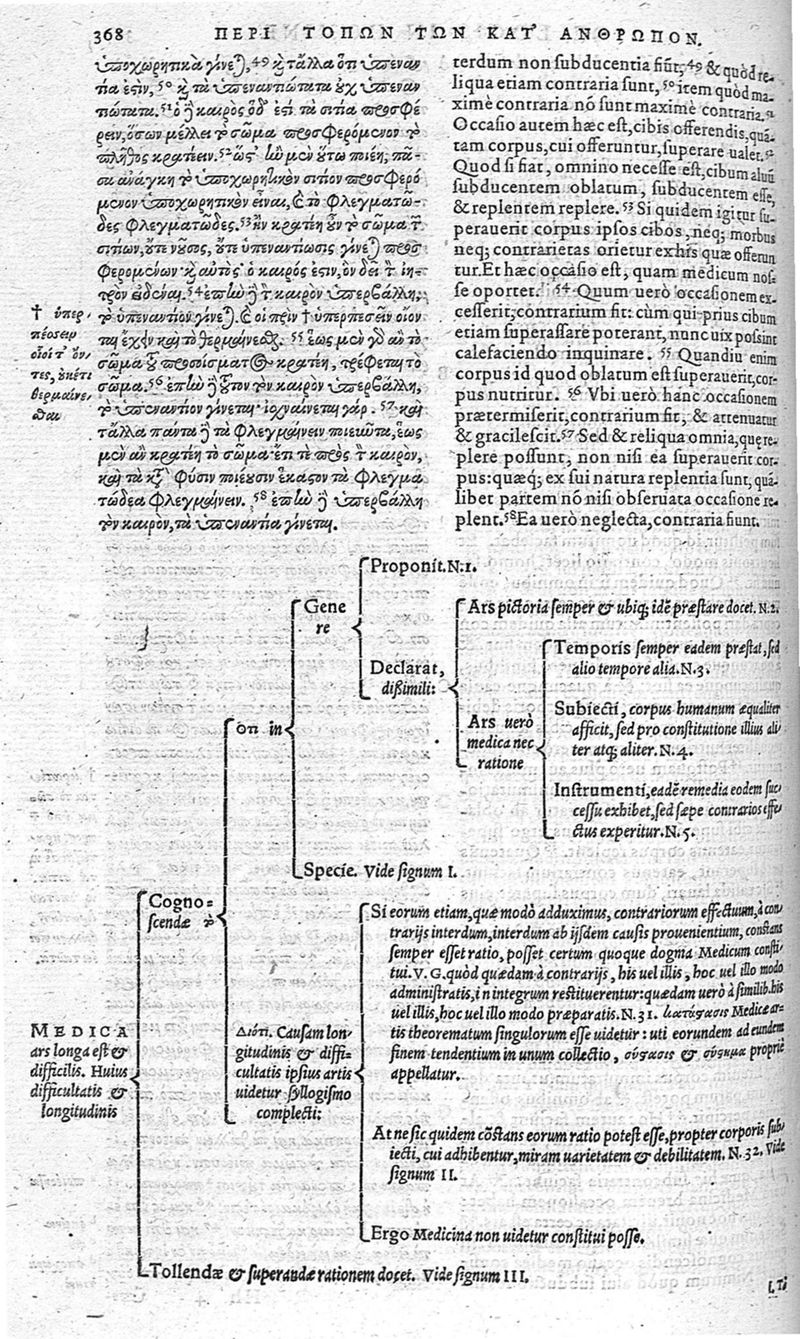 368 ΠΕΡΙ ΤΟΠΩΝ ΤΩΝ ΚΑΤ' ΑΝΘΡΩΠΟΝ.
ὑποχωρητικὰ γίνεται, 49 καὶ τἄλλα ὅτι ὑπεναν-
τία ἐστὶν, 50 καὶ τὰ ὑπεναντιώτατα οὐχ ὑπεναν-
τιώτατα. 51 ὁ ἢ καιρὸς ὅδ' ἐστὶ τὰ σιτία προσφέ-
ρειν, ὅσων μέλλει τὸ σῶμα προσφερόμενον τὸ
πλῆθος κρατέειν. 52 ὥς' ἢν μὲν οὕτω ποιέῃ, πᾶ-
σα ἀνάγκη τὸ ὑποχωρητικὸν σιτίον προσφερό-
μενον ὑποχωρητικὸν εἶναι, καὶ τὸ φλεγματῶ-
δες φλεγματῶδες. 53 ἢν κρατέῃ οὖν τὸ σῶμα τῶν
σιτίων, οὔτε νοῦσος, οὔτε ὑπεναντίωσις γίνεται προσ
φερομένων· καὶ αὐτὸς ὁ καιρός ἐστιν, ὃν δεῖ τὸν ἰη-
τρὸν εἰδέναι. 54 ἐπὴν ἢ τὸν καιρὸν ὑπερβάλλῃ,
τὸ ὑπεναντίον γίνεται. καὶ οἱ πρὶν † ὑπερπέσειν οἷόν
τι ἔχῃν καὶ τὸ θερμαίνεσθαι. 55 ἕως μὲν γὰρ ἂν τὸ
σῶμα τοῦ προσοίσματος κρατέῃ, τρέφεται τὸ
σῶμα. 56 ἐπὴν ἢ τοῦτον τὸν καιρὸν ὑπερβάλλῃ,
τὸ ὑπεναντίον γίνεται· ἰσχναίνεται γάρ. 57 καὶ
τἄλλα πάντα ἢ τὰ φλεγμαίνειν ποιεῦντα, ἕως
μὲν ἂν κρατέῃ τὸ σῶμα. ἔτι τε πρὸς τὸν καιρὸν,
καὶ τὰ κατὰ φύσιν ποιεῦσιν ἕκαστον τὰ φλεγμα
τώδεα φλεγμαίνειν. 58 ἐπὴν ἢ ὑπερβάλλῃ
τὸν καιρὸν, τὰ ὑπεναντία γίνεται.
† ὑπερ-
πέοσειρ
οἷοί τ' ὄν-
τες, οὐκέτι
θερμαίνε-
σθαι
terdum non subducentia fiũt, 49 & quòd re-
liqua etiam contraria sunt, 50 item quòd ma-
ximè contraria nõ sunt maximè contraria. 51
Occasio autem hæc est, cibis offerendis, quã-
tam corpus, cui offeruntur, superare ualet. 52
Quod si fiat, omnino necesse est, cibum aluũ
subducentem oblatum, subducentem esse,
& replentem replere. 53 Si quidem igitur su-
perauerit corpus ipsos cibos, neq; morbus
neq; contrarietas orietur ex his quæ offerun
tur. Et hæc occasio est, quam medicum nos-
se oportet. 54 Quum uerò occasionem ex-
cesserit, contrarium fit: cùm qui prius cibum
etiam superassare poterant, nunc uix possint
calefaciendo inquinare. 55 Quandiu enim
corpus id quod oblatum est superauerit, cor-
pus nutritur. 56 Vbi uerò hanc occasionem
prætermiserit, contrarium fit, & attenuatur
& gracilescit. 57 Sed & reliqua omnia, quę re-
plere possunt, non nisi ea superauerit cor-
pus: quæq; ex sui natura replentia sunt, quã-
libet partem nõ nisi obseruata occasione re-
plent. 58 Ea uerò neglecta, contraria fiunt.
Proponit. N. 1.
Gene
re
Ars pictoria semper & ubiq; idẽ præstare docet. N. 2.
Declarat,
dißimili:
Temporis semper eadem præstat, sed
alio tempore alia. N. 3.
Ars uerò
medica nec
ratione
Subiecti, corpus humanum æqualiter
afficit, sed pro constitutione illius ali-
ter atq; aliter. N. 4.
ὅτι in
Instrumenti, eadẽ remedia eodem suc-
cessu exhibet, sed sæpe contrarios effe-
ctus experitur. N. 5.
Specie. Vide signum I.
Cogno-
scendæ τὸ
Si eorum etiam, quæ modò adduximus, contrariorum effectuum, à con
trarijs interdum, interdum ab ijsdem causis prouenientium, constans
semper esset ratio, posset certum quoque dogma Medicum consti-
tui. V. G. quòd quædam à contrarijs, his uel illis, hoc uel illo modo
administratis, in integrum restituerentur: quædam uerò à similib. his
uel illis, hoc uel illo modo præparatis. N. 31. κατάφασις Medicæ ar-
tis theorematum singulorum esse uidetur: uti eorundem ad eundem
finem tendentium in unum collectio, σύστασις & σύστημα propriè
appellatur.
MEDICA
ars longa est &
difficilis. Huius
difficultatis &
longitudinis
Διότι. Causam lon-
gitudinis & diffi-
cultatis ipsius artis
uidetur syllogismo
complecti:
At ne sic quidem cõstans eorum ratio potest esse, propter corporis sub-
iecti, cui adhibentur, miram uarietatem & debilitatem. N. 32. Vide
signum II.
Ergo Medicina non uidetur constitui posse.
Tollendæ & superandæ rationem docet. Vide signum III.